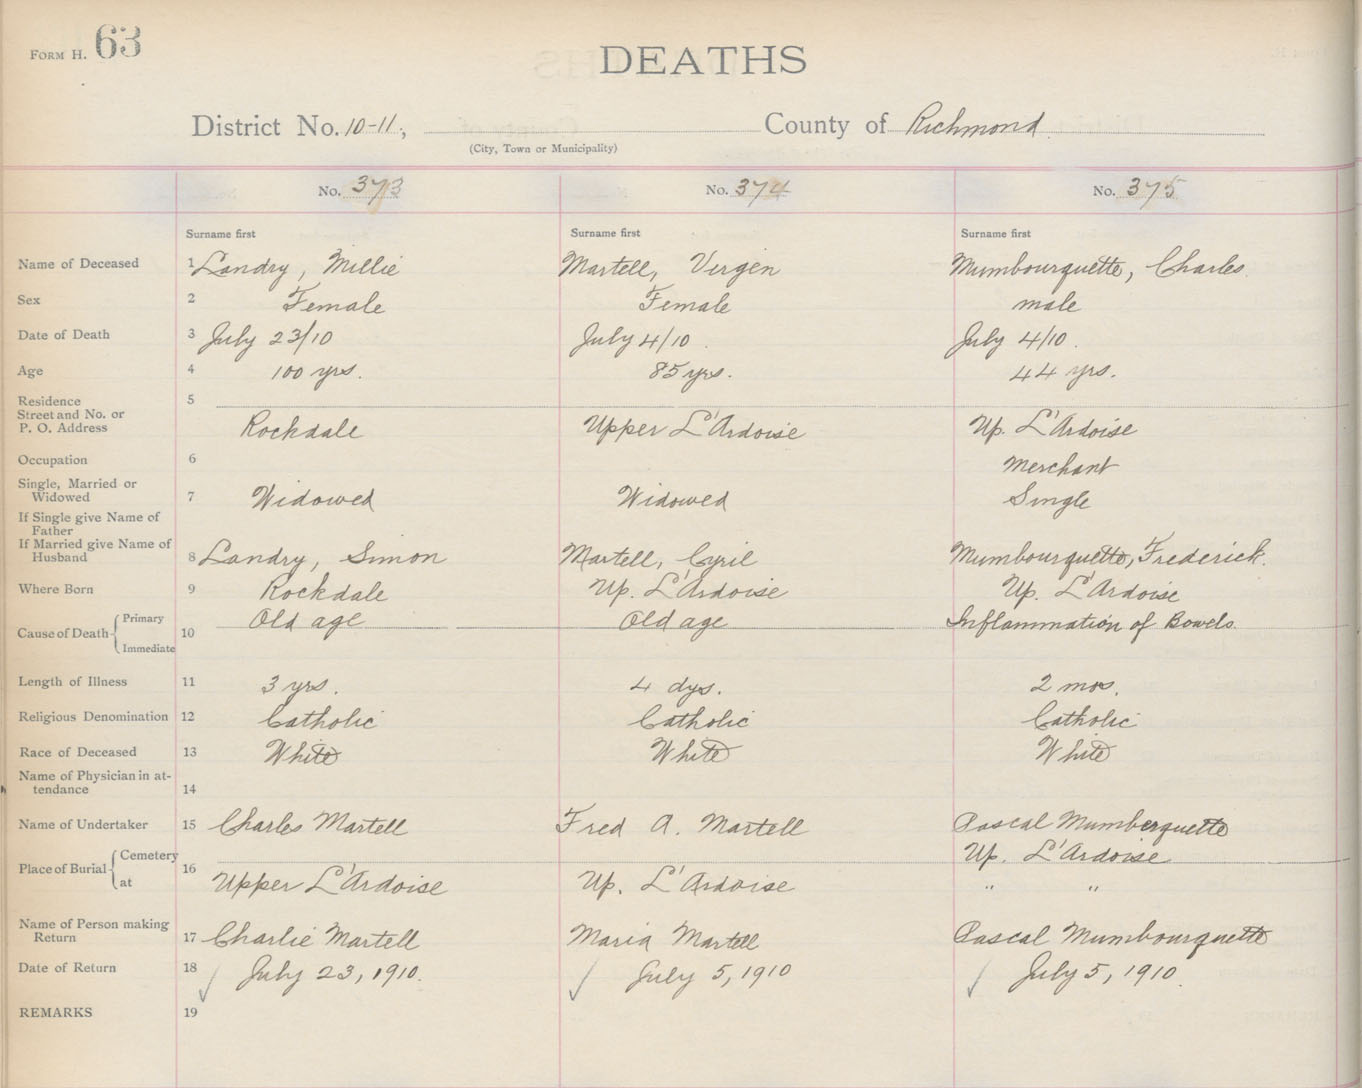 FORM H. 63
DEATHS
District No. 10-11, County of Richmond
(City, Town or Municipality)
No. 373 No. 374 No. 375
Surname first Surname first Surname first
Name of Deceased 1 Landry, Millie Martell, Vergen Mumbourquette, Charles
Sex 2 Female Female male
Date of Death 3 July 23/10 July 4/10 July 4/10
Age 4 100 yrs. 85 yrs. 44 yrs.
Residence 5
Street and No. or
P. O. Address Rockdale Upper L'Ardoise Up. L'Ardoise
Occupation 6 merchant
Single, Married or
Widowed 7 Widowed Widowed Single
If Single give Name of
Father
If Married give Name of
Husband 8 Landry, Simon Martell, Cyril Mumbourquette, Frederick.
Where Born 9 Rockdale Up. L'Ardoise Up. L'Ardoise
Cause of Death Primary 10 Old age Old age Inflammation of Bowels.
Immediate
Length of Illness 11 3 yrs. 4 dys. 2 mos.
Religious Denomination 12 Catholic Catholic Catholic
Race of Deceased 13 White White White
Name of Physician in at-
tendance 14
Name of Undertaker 15 Charles Martell Fred A. Martell Pascal Mumberquette
Place of Burial Cemetery 16 Up. L'Ardoise
at Upper L'Ardoise Up. L'Ardoise " "
Name of Person making
Return 17 Charlie Martell Maria Martell Pascal Mumbourquette
Date of Return 18 July 23, 1910. July 5, 1910 July 5, 1910.
REMARKS 19